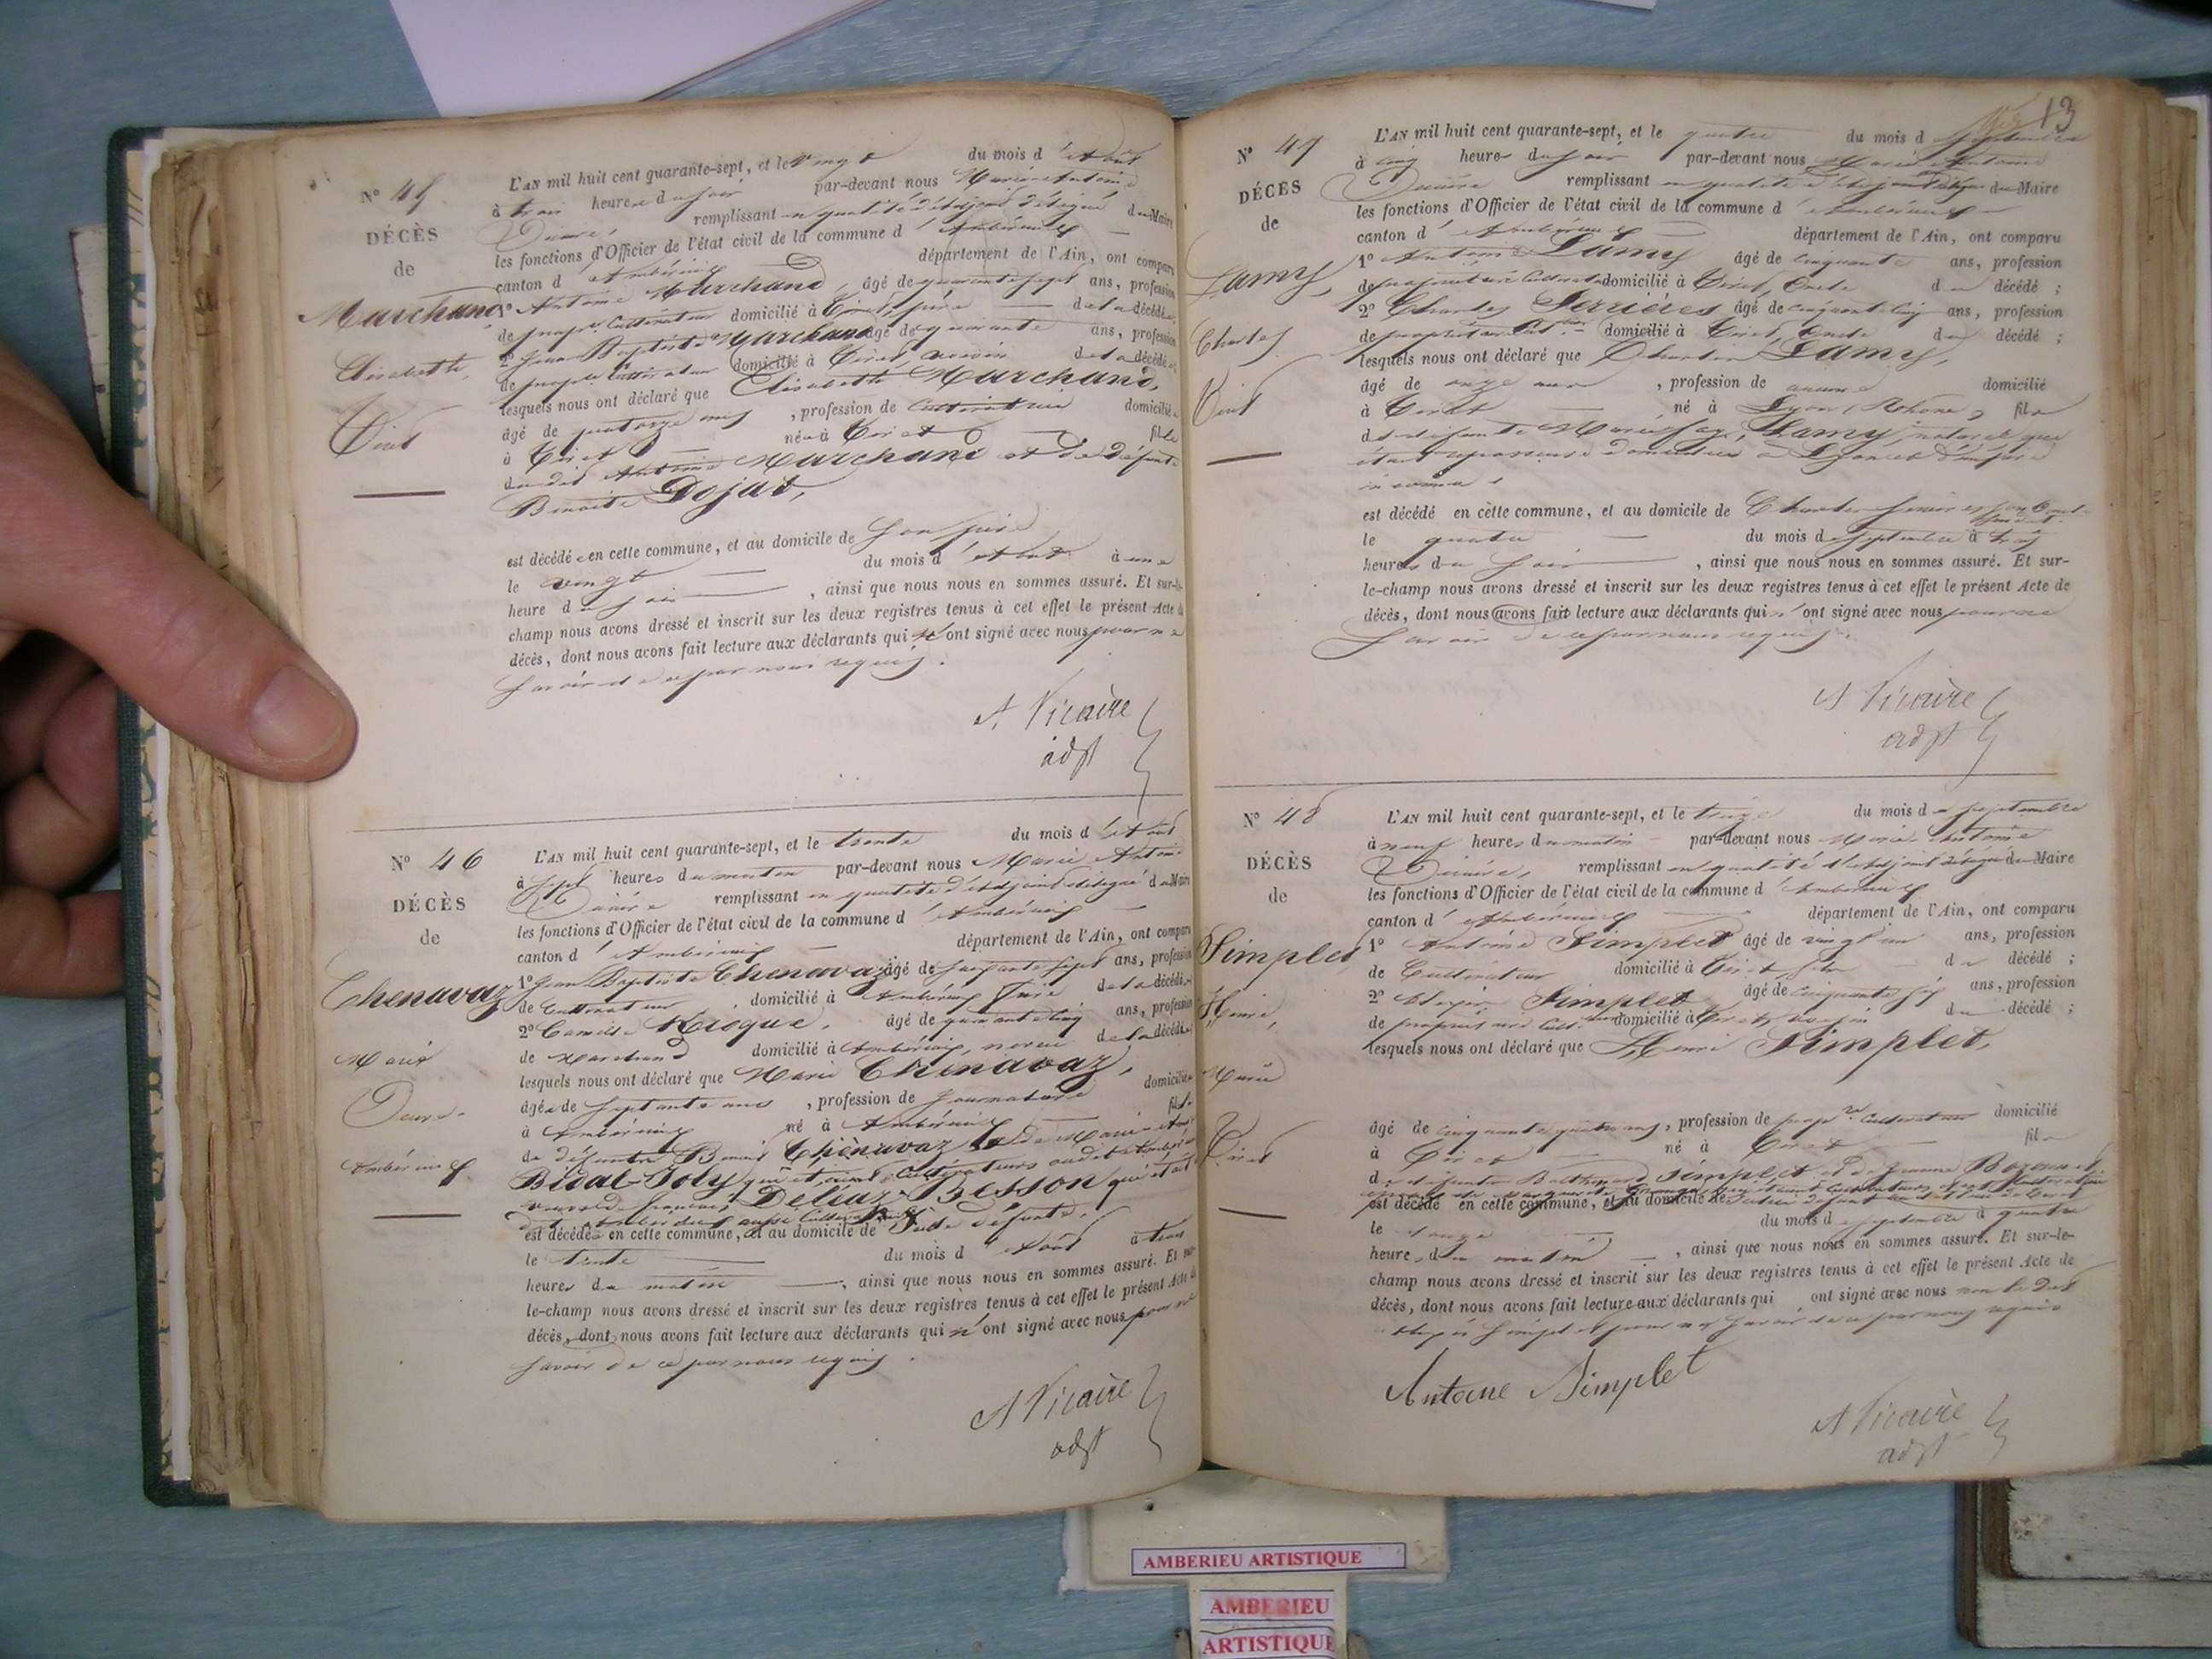 N° 45
DÉCÈS
de
Marchand
Elisabeth,
Tiret
L'AN mil huit cent quarante-sept, et le vingt du mois d'Août
à trois heures du soir par-devant nous Marie-Antoine
Vicaire, remplissant en qualité d'adjoint délégué du Maire
les fonctions d'Officier de l'état civil de la commune d'Ambérieux
canton d'Ambérieux département de l'Ain, ont comparu
1° Antoine Marchand, âgé de quarante sept ans, profession
de propre Cultivateur domicilié à Tiret, père de la décédée
2° Jean Baptiste Marchand âgé de quarante ans, profession
de propre Cultivateur domicilié à Tiret, voisin de la décédée
lesquels nous ont déclaré que Elisabeth Marchand,
âgé de quatorze ans, profession de Cultivatrice domiciliée
à Tiret née à Tiret fille
du dit Antoine Marchand et de défunte
Benoite Dojat,
est décédée en cette commune, et au domicile de son père
le vingt du mois d'Août à une
heure du soir, ainsi que nous nous en sommes assuré. Et sur-le-
champ nous avons dressé et inscrit sur les deux registres tenus à cet effet le présent Acte de
décès, dont nous avons fait lecture aux déclarants qui n'ont signé avec nous pour ne
savoir de ce par nous requis.
A Vicaire
adjt
N° 46
DÉCÈS
de
Chenavaz
Marie
Veuve
Ambérieux
L'AN mil huit cent quarante-sept, et le trente du mois d'Août
à sept heures du matin par-devant nous Marie Antoine
Vicaire remplissant en qualité d'adjoint délégué du Maire
les fonctions d'Officier de l'état civil de la commune d'Ambérieux
canton d'Ambérieux département de l'Ain, ont comparu
1° Jean Baptiste Chenavaz âgé de soixante sept ans, profession
de Cultivateur, domicilié à Ambérieux frère de la décédée
2° Camille Kroque, âgé de quarante cinq ans, profession
de Marchand domicilié à Ambérieux, neveu de la décédée
lesquels nous ont déclaré que Marie Chenavaz,
âgée de septante ans, profession de Journalière domiciliée
à Ambérieux né à Ambérieux fille
de défunts Benoit Chenavaz et de Marie
Bidal-Joly qui étaient Cultivateurs audit Ambérieux
veuve de françois Deleaz-Besson qui était
aussi Cultivateur
est décédée en cette commune, et au domicile de ladite défunte,
le trente du mois d'Août à trois
heures du matin, ainsi que nous nous en sommes assuré. Et sur-
le-champ nous avons dressé et inscrit sur les deux registres tenus à cet effet le présent Acte de
décès, dont nous avons fait lecture aux déclarants qui n'ont signé avec nous pour ne
savoir de ce par nous requis.
A Vicaire
adjt
13
N° 47
DÉCÈS
de
Lamy,
Charles
Tiret
L'AN mil huit cent quarante-sept, et le quatre du mois de Septembre
à cinq heures du soir par-devant nous Marie Antoine
Vicaire remplissant en qualité d'adjoint délégué du Maire
les fonctions d'Officier de l'état civil de la commune d'Ambérieux
canton d'Ambérieux département de l'Ain, ont comparu
1° Antoine Lamy âgé de cinquante ans, profession
de propriétaire Cultivateur domicilié à Tiret, Oncle du décédé ;
2° Charles Ferrières âgé de cinquante cinq ans, profession
de propriétaire Cult. domicilié à Tiret, Oncle du décédé ;
lesquels nous ont déclaré que Charles Lamy,
âgé de onze ans, profession de aucune domicilié
à Tiret né à Lyon, Rhône, fils
de défunte Marie Lamy, naturel que
était repasseuse domiciliée à Lyon et d'un père
inconnu,
est décédé en cette commune, et au domicile de Charles son Oncle
le quatre du mois de Septembre à trois
heures du soir, ainsi que nous nous en sommes assuré. Et sur-
le-champ nous avons dressé et inscrit sur les deux registres tenus à cet effet le présent Acte de
décès, dont nous avons fait lecture aux déclarants qui n'ont signé avec nous pour ne
savoir de ce par nous requis.
A Vicaire
adjt
N° 48
DÉCÈS
de
Simplet
Henri,
Marié
Tiret
L'AN mil huit cent quarante-sept, et le treize du mois de Septembre
à neuf heures du matin par-devant nous Marie Antoine
Vicaire, remplissant en qualité d'adjoint délégué du Maire
les fonctions d'Officier de l'état civil de la commune d'Ambérieux
canton d'Ambérieux département de l'Ain, ont comparu
1° Antoine Simplet âgé de vingt un ans, profession
de Cultivateur domicilié à Tiret fils du décédé ;
2° Simplet âgé de cinquante six ans, profession
de propriétaire Cult. domicilié à Tiret, voisin du décédé ;
lesquels nous ont déclaré que Henri Simplet,
âgé de cinquante quatre ans, profession de propre Cultivateur domicilié
à Tiret né à Tiret fils
de défunts Simplet et de Jeanne Bozonnet
est décédé en cette commune, et au domicile de
le du mois de Septembre à quatre
heures du matin, ainsi que nous nous en sommes assuré. Et sur-le-
champ nous avons dressé et inscrit sur les deux registres tenus à cet effet le présent Acte de
décès, dont nous avons fait lecture aux déclarants qui ont signé avec nous non le dit
Simplet pour ne savoir de ce par nous requis
Antoine Simplet
A Vicaire
adjt
AMBERIEU ARTISTIQUE
AMBERIEU
ARTISTIQUE